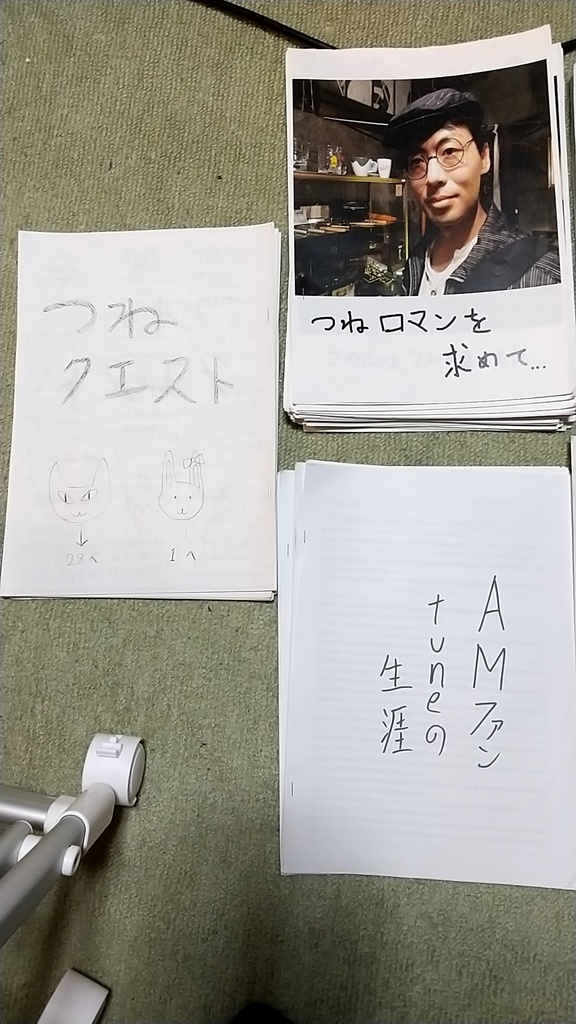 つね
クエスト
28へ
1へ
つねロマンを
求めて…
AMファン
tuneの
生涯